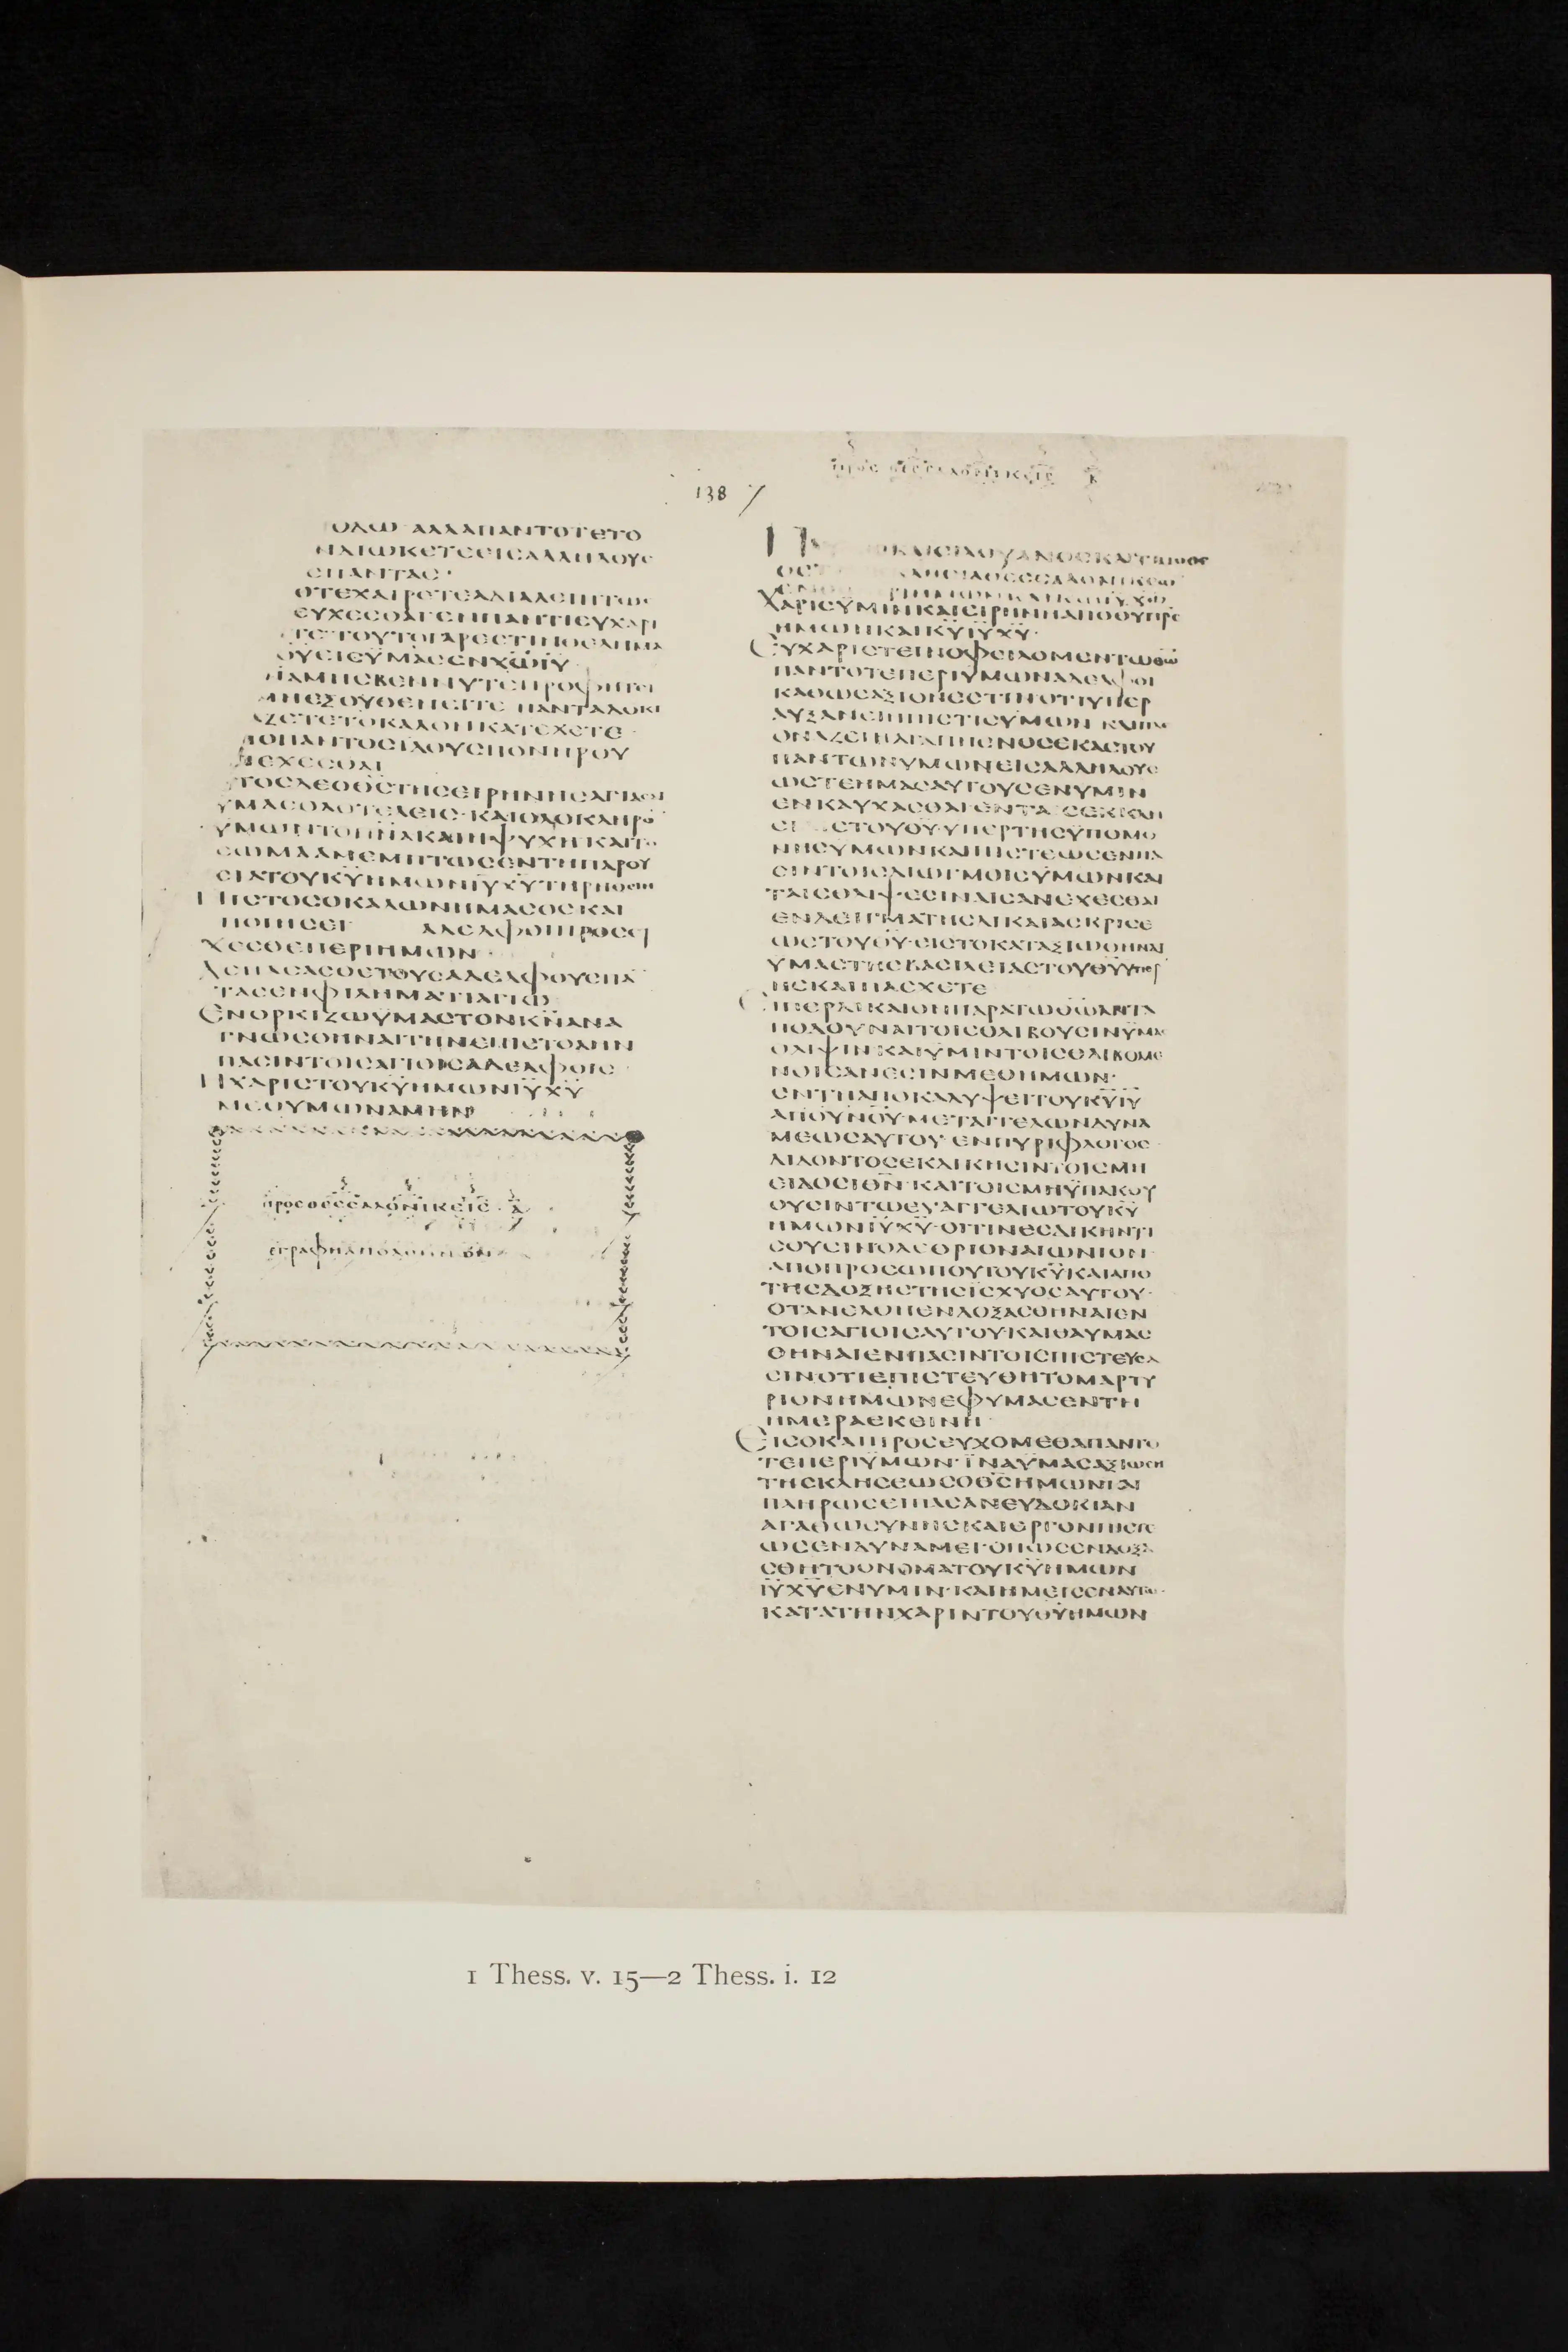 138
ΑΛΛΑΠΑΝΤΟΤΕΤΟ
ΔΙΩΚΕΤΕΕΙΣΑΛΛΗΛΟΥϹ
ΠΑΝΤΑϹ·
ΕΥΧΕϹΘΑΙ
ΥΜΑϹΕΝΧΩΙΥ
ΠΑΝΤΑΔΟΚΙ
ΖΕΤΕΤΟΚΑΛΟΝΚΑΤΕΧΕΤΕ
ΠΑΝΤΟϹΕΙΔΟΥϹΠΟΝΗΡΟΥ
ΥΜΑϹΟΛΟΤΕΛΕΙϹ·ΚΑΙΟΛΟΚΛΗΡΟ
ΥΜΩΝΤΟΠΝΑΚΑΙΗΨΥΧΗΚΑΙΤΟ
ϹΩΜΑΑΜΕΜΠΤΩϹΕΝΤΗΠΑΡΟΥ
ϹΙΑΤΟΥΚΥΗΜΩΝΙΥΧΥΤΗΡΗΘΕΙΗ
ΠΙϹΤΟϹΟΚΑΛΩΝΗΜΑϹΟϹΚΑΙ
ΠΟΙΗϹΕΙ ΑΔΕΛΦΟΙΠΡΟϹΕΥ
ΧΕϹΘΕΠΕΡΙΗΜΩΝ·
ΑϹΠΑϹΑϹΘΕΤΟΥϹΑΔΕΛΦΟΥϹΠΑ
ΤΑϹΕΝΦΙΛΗΜΑΤΙΑΓΙΩ
ΕΝΟΡΚΙΖΩΥΜΑϹΤΟΝΚΝΑΝΑ
ΓΝΩϹΘΗΝΑΙΤΗΝΕΠΙϹΤΟΛΗΝ
ΠΑϹΙΝΤΟΙϹΑΓΙΟΙϹΑΔΕΛΦΟΙϹ·
ΗΧΑΡΙϹΤΟΥΚΥΗΜΩΝΙΥΧΥ
ΜΕΘΥΜΩΝΑΜΗΝ
ΠΡΟϹΘΕϹϹΑΛΟΝΙΚΕΙϹ·Α
ΕΓΡΑΦΗΑΠΟΑΘΗΝΩΝ
ΠΡΟϹ ΘΕϹϹΑΛΟΝΙΚΕΙϹ Β
ΚΑΙϹΙΛΟΥΑΝΟϹΚΑΙΤΙΜΟΘΕ
ΧΑΡΙϹΥΜΙΝΚΑΙΕΙΡΗΝΗΑΠΟΘΥΠΡϹ
ΗΜΩΝΚΑΙΚΥΙΥΧΥ·
ΕΥΧΑΡΙϹΤΕΙΝΟΦΕΙΛΟΜΕΝΤΩΘΩ
ΠΑΝΤΟΤΕΠΕΡΙΥΜΩΝΑΔΕΛΦΟΙ
ΚΑΘΩϹΑΞΙΟΝΕϹΤΙΝΟΤΙΥΠΕΡ
ΑΥΞΑΝΕΙΗΠΙϹΤΙϹΥΜΩΝ ΚΑΙΠΛΕ
ΟΝΑΖΕΙΗΑΓΑΠΗΕΝΟϹΕΚΑϹΤΟΥ
ΠΑΝΤΩΝΥΜΩΝΕΙϹΑΛΛΗΛΟΥϹ
ΩϹΤΕΗΜΑϹΑΥΤΟΥϹΕΝΥΜΙΝ
ΕΝΚΑΥΧΑϹΘΑΙ·ΕΝΤΑ ϹΕΚΚΛΗ
ϹΙ ϹΤΟΥΘΥ·ΥΠΕΡΤΗϹΥΠΟΜΟ
ΝΗϹΥΜΩΝΚΑΙΠΙϹΤΕΩϹΕΝΠΑ
ϹΙΝΤΟΙϹΔΙΩΓΜΟΙϹΥΜΩΝΚΑΙ
ΤΑΙϹΘΛΙΨΕϹΙΝΑΙϹΑΝΕΧΕϹΘΑΙ
ΕΝΔΕΙΓΜΑΤΗϹΔΙΚΑΙΑϹΚΡΙϹΕ
ΩϹΤΟΥΘΥ·ΕΙϹΤΟΚΑΤΑΞΙΩΘΗΝΑΙ
ΥΜΑϹΤΗϹΒΑϹΙΛΕΙΑϹΤΟΥΘΥΥΠΕΡ
ΗϹΚΑΙΠΑϹΧΕΤΕ
ΕΙΠΕΡΔΙΚΑΙΟΝΠΑΡΑΤΩΘΩΑΝΤΑ
ΠΟΔΟΥΝΑΙΤΟΙϹΘΛΙΒΟΥϹΙΝΥΜΑϹ
ΘΛΙΨΙΝ·ΚΑΙΥΜΙΝΤΟΙϹΘΛΙΒΟΜΕ
ΝΟΙϹΑΝΕϹΙΝΜΕΘΗΜΩΝ·
ΕΝΤΗΑΠΟΚΑΛΥΨΕΙΤΟΥΚΥΙΥ
ΑΠΟΥΝΟΥ·ΜΕΤΑΓΓΕΛΩΝΔΥΝΑ
ΜΕΩϹΑΥΤΟΥ·ΕΝΠΥΡΙΦΛΟΓΟϹ·
ΔΙΔΟΝΤΟϹΕΚΔΙΚΗϹΙΝΤΟΙϹΜΗ
ΕΙΔΟϹΙΘΝ·ΚΑΙΤΟΙϹΜΗΥΠΑΚΟΥ
ΟΥϹΙΝΤΩΕΥΑΓΓΕΛΙΩΤΟΥΚΥ
ΗΜΩΝΙΥΧΥ·ΟΙΤΙΝΕϹΔΙΚΗΝΤΙ
ϹΟΥϹΙΝΟΛΕΘΡΙΟΝΑΙΩΝΙΟΝ·
ΑΠΟΠΡΟϹΩΠΟΥΤΟΥΚΥΚΑΙΑΠΟ
ΤΗϹΔΟΞΗϹΤΗϹΙϹΧΥΟϹΑΥΤΟΥ·
ΟΤΑΝΕΛΘΗΕΝΔΟΞΑϹΘΗΝΑΙΕΝ
ΤΟΙϹΑΓΙΟΙϹΑΥΤΟΥ·ΚΑΙΘΑΥΜΑϹ
ΘΗΝΑΙΕΝΠΑϹΙΝΤΟΙϹΠΙϹΤΕΥϹΑ
ϹΙΝΟΤΙΕΠΙϹΤΕΥΘΗΤΟΜΑΡΤΥ
ΡΙΟΝΗΜΩΝΕΦΥΜΑϹΕΝΤΗ
ΗΜΕΡΑΕΚΕΙΝΗ·
ΕΙϹΟΚΑΙΠΡΟϹΕΥΧΟΜΕΘΑΠΑΝΤΟ
ΤΕΠΕΡΙΥΜΩΝ·ΙΝΑΥΜΑϹΑΞΙΩϹΗ
ΤΗϹΚΛΗϹΕΩϹΟΘϹΗΜΩΝΚΑΙ
ΠΛΗΡΩϹΕΙΠΑϹΑΝΕΥΔΟΚΙΑΝ
ΑΓΑΘΩϹΥΝΗϹΚΑΙΕΡΓΟΝΠΙϹΤΕ
ΩϹΕΝΔΥΝΑΜΕΙ·ΟΠΩϹΕΝΔΟΞΑ
ϹΘΗΤΟΟΝΟΜΑΤΟΥΚΥΗΜΩΝ
ΙΥΧΥΕΝΥΜΙΝ·ΚΑΙΗΜΕΙϹΕΝΑΥΤΩ·
ΚΑΤΑΤΗΝΧΑΡΙΝΤΟΥΘΥΗΜΩΝ
1 Thess. v. 15—2 Thess. i. 12